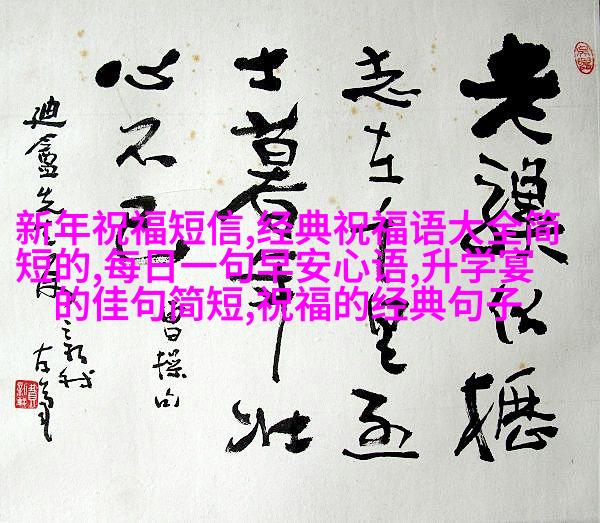 新年祝福短信,经典祝福语大全简
短的,每日一句早安心语,升学宴
的佳句简短,祝福的经典句子
老驥伏櫪
志在千里烈
士暮年壮
心不已
曹操句